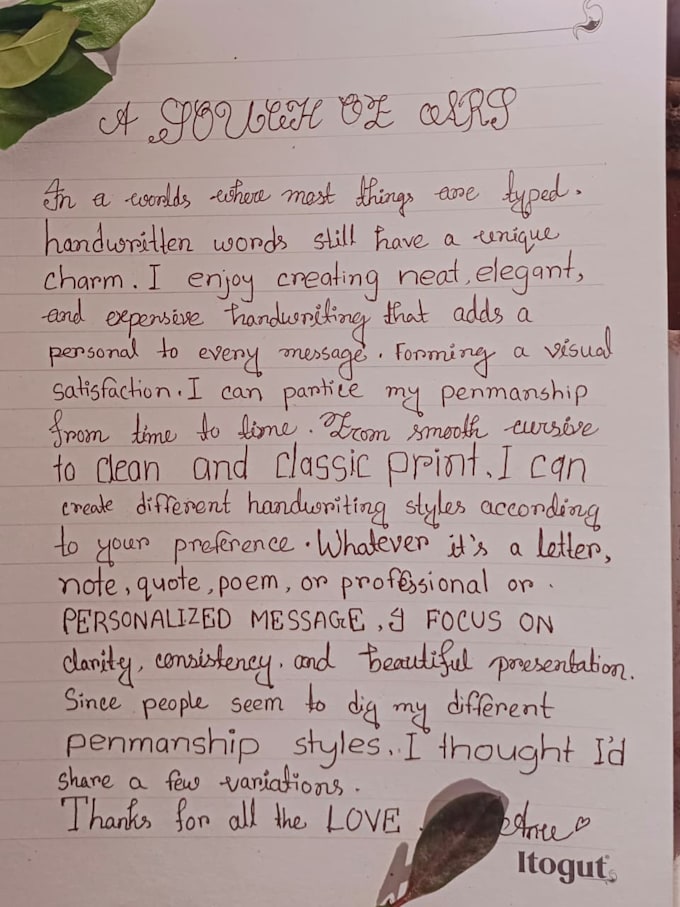 A TOUCH OF ART
In a worlds where most things are typed.
handwritten words still have a unique
charm. I enjoy creating neat, elegant,
and expensive handwriting that adds a
personal to every message. Forming a visual
satisfaction. I can partice my penmanship
from time to time. From smooth cursive
to clean and classic print. I can
create different handwriting styles according
to your preference. Whatever it's a letter,
note, quote, poem, or professional or.
PERSONALIZED MESSAGE, I FOCUS ON
clarity, consistency, and beautiful presentation.
Since people seem to dig my different
penmanship styles.. I thought I'd
share a few variations.
Thanks for all the LOVE.
Itogut